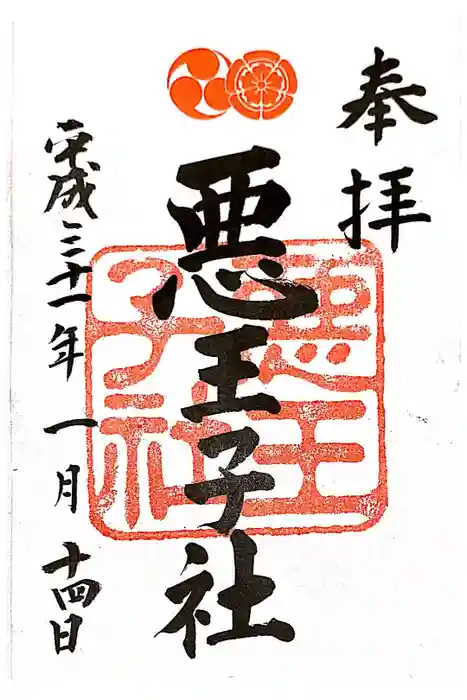 奉拝
悪王子社
悪王子社
平成三十一年一月十四日